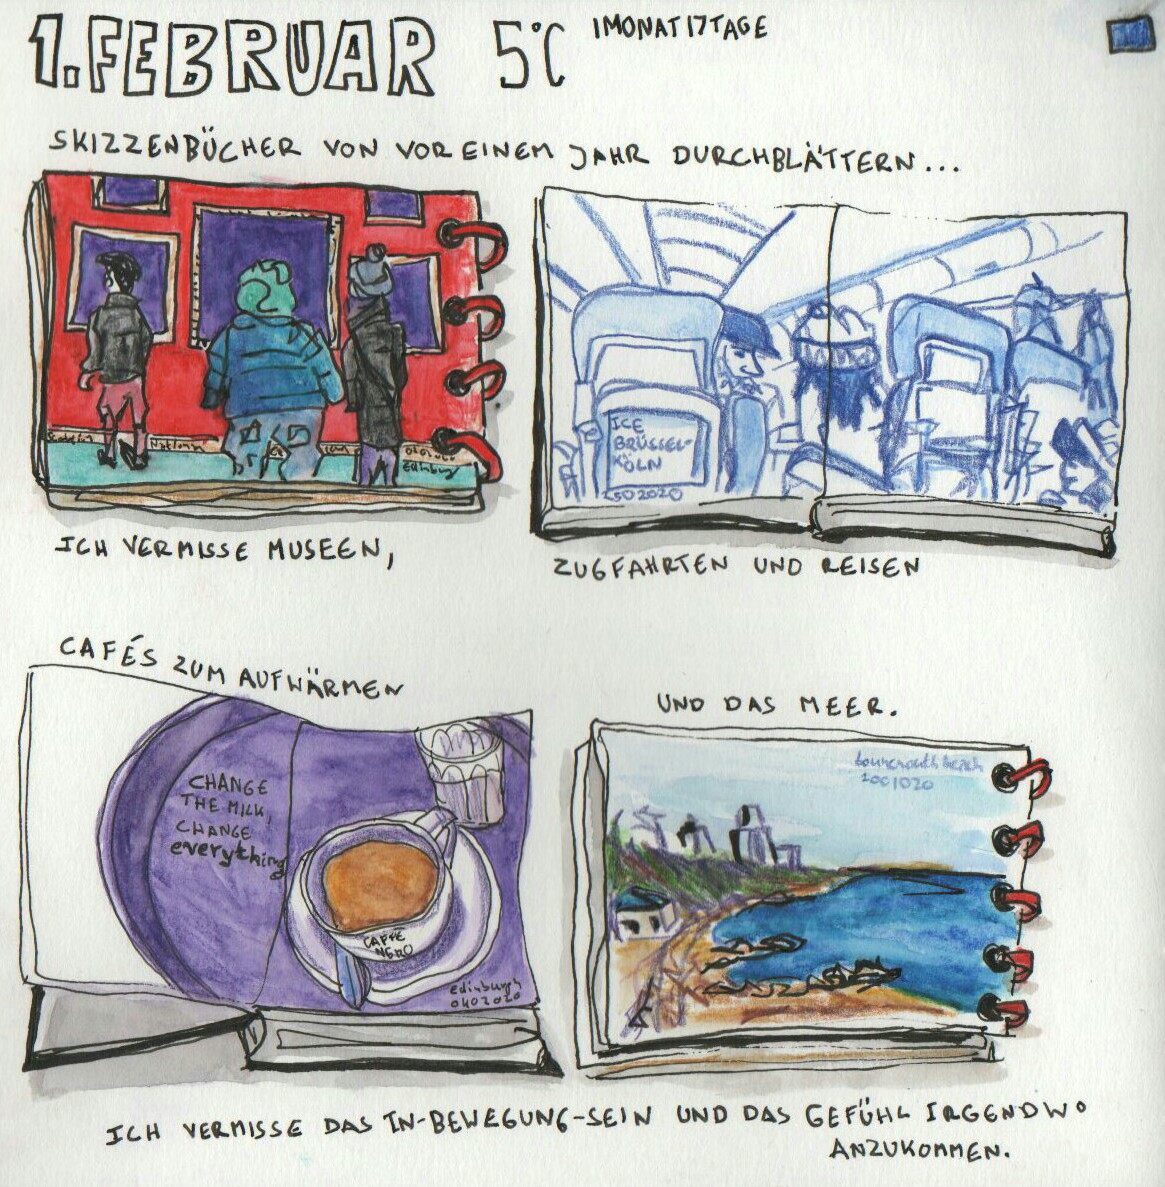 1. FEBRUAR 5°C 1 MONAT 17 TAGE
SKIZZENBÜCHER VON VOR EINEM JAHR DURCHBLÄTTERN...
Edinburgh
ICH VERMISSE MUSEEN,
ICE
BRÜSSEL-
KÖLN
2020
ZUGFAHRTEN UND REISEN
CAFÉS ZUM AUFWÄRMEN
CHANGE
THE MILK,
CHANGE
everything
CAFFÈ
NERO
edinburgh
04022020
UND DAS MEER.
bournemouth beach
ICH VERMISSE DAS IN-BEWEGUNG-SEIN UND DAS GEFÜHL IRGENDWO
ANZUKOMMEN.